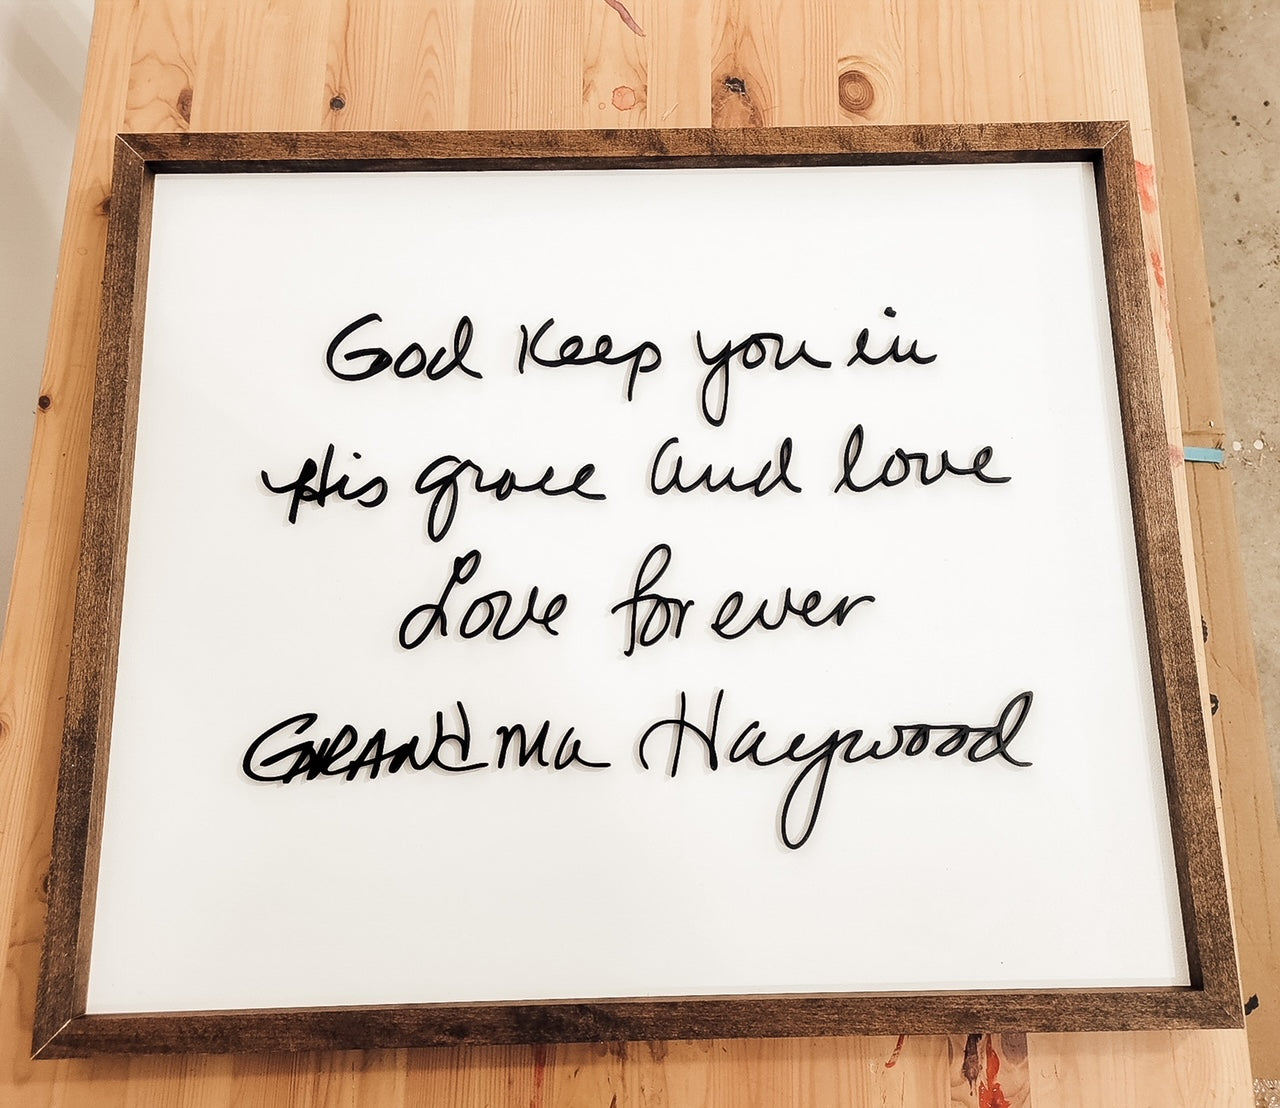 God Keep you in
His grace and love
Love forever
GRANdma Haywood